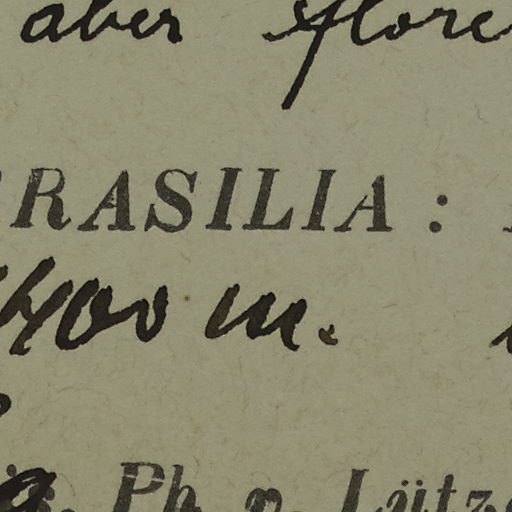 aber flore
BRASILIA :
400 m.
Ph. v. Lütz